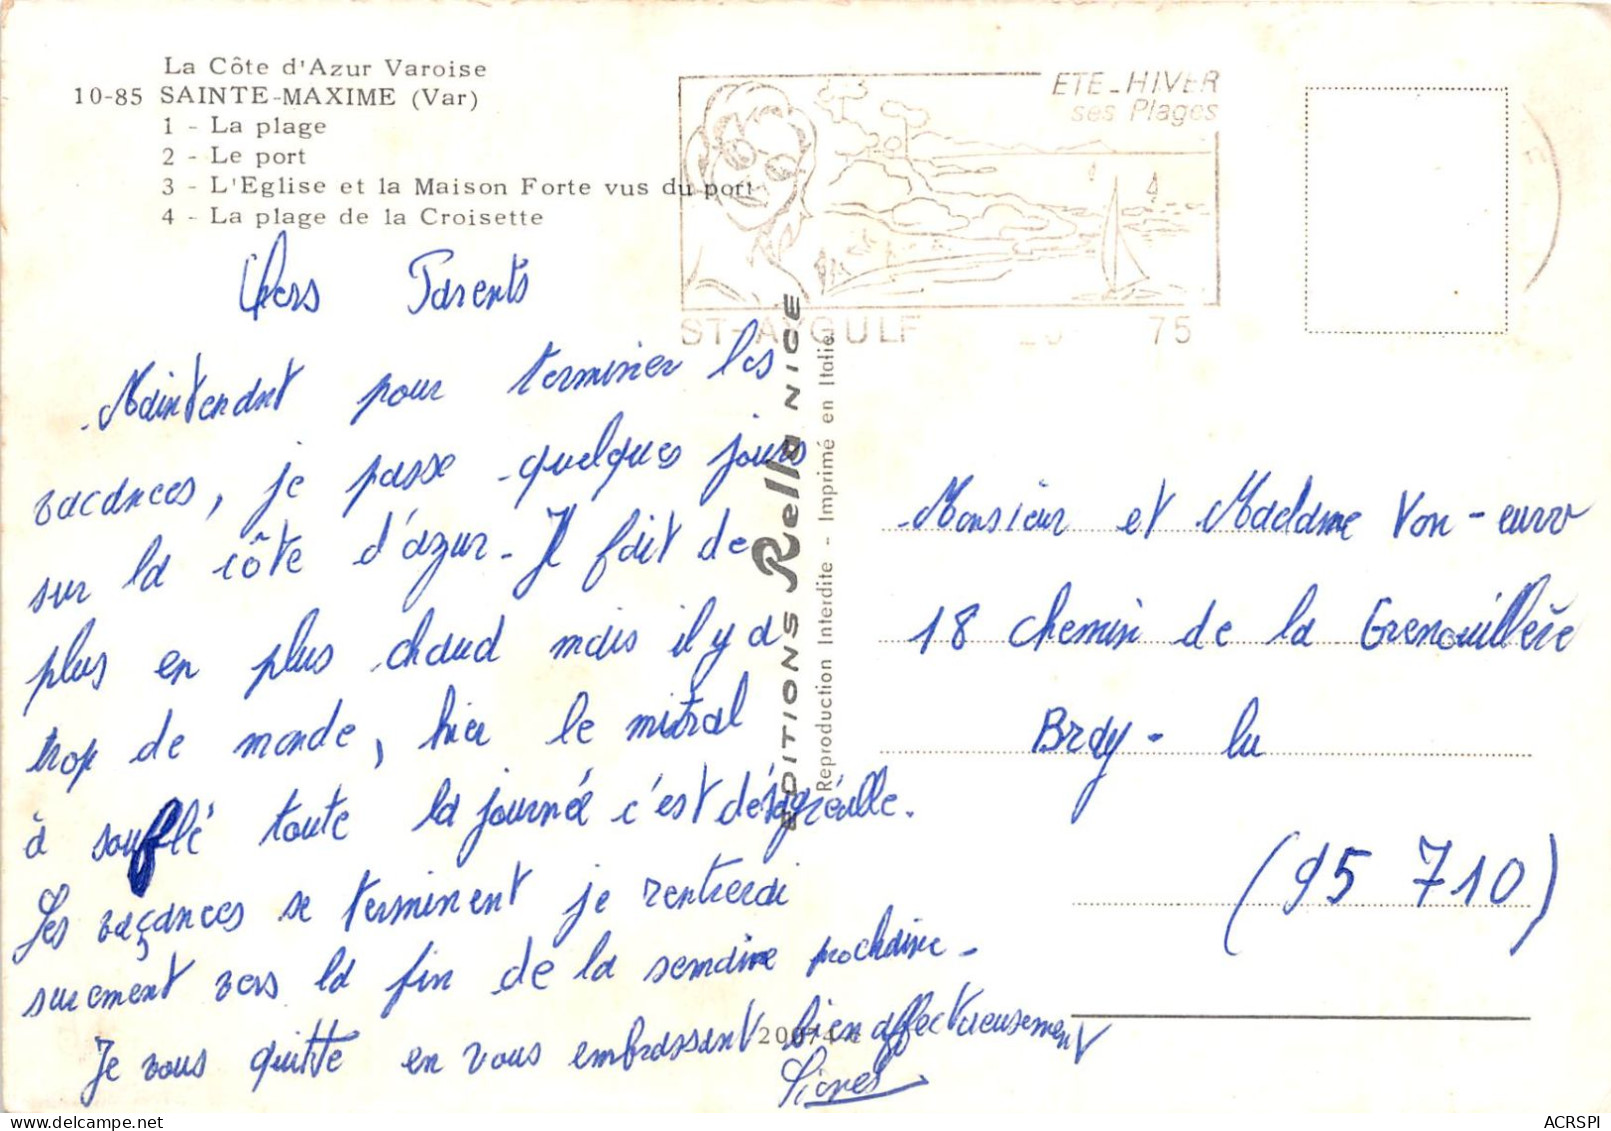 La Côte d'Azur Varoise
10-85 SAINTE-MAXIME (Var)
1 - La plage
2 - Le port
3 - L'Eglise et la Maison Forte vus du port
4 - La plage de la Croisette
ETE-HIVER
ses Plages
ST-AYGULF
75
Chers Parents
Maintenant pour terminer les
vacances, je passe quelques jours
sur la côte d'azur - Il fait de
plus en plus chaud mais il y a
trop de monde, hier le mistral
à soufflé toute la journée c'est désagréalle.
Les vacances se terminent je rentrerai
surement vers la fin de la semaine prochaine -
Je vous quitte en vous embrassant bien affectueusement
EDITIONS Rella NICE
Reproduction Interdite - Imprimé en Italie
Monsieur et Madame
18 Chemin de la Grenouillère
Bray - lu
(95 710)
ACRSPI